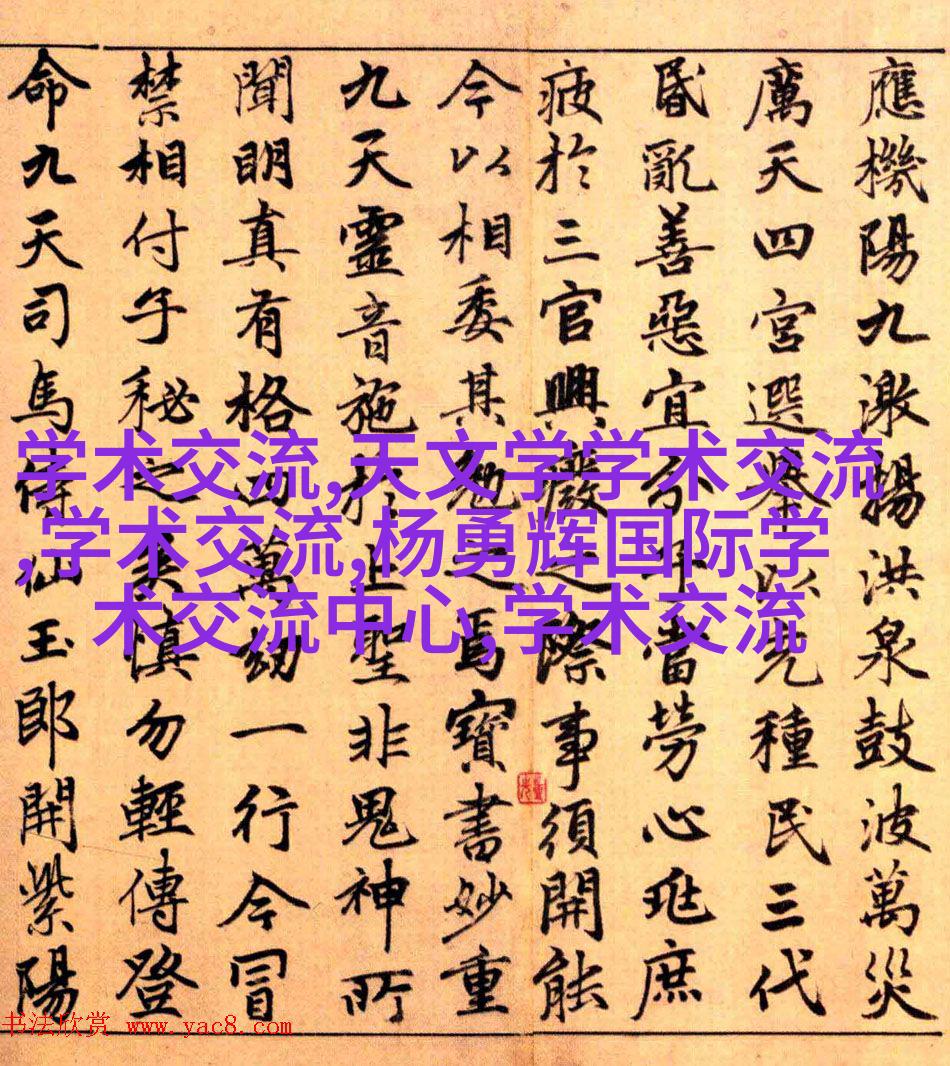 應機陽九激揚洪泉鼓波萬災
厲天四宮選舉以充種民三代
昏亂善惡宜分卿當勞心兆庶
疲於三官興廢之際事須開能
今以相委其勉之焉寶書妙重
九天靈音施於上聖非鬼神所
聞明真有格四萬劫一行今冒
禁相付子秘之矣慎勿輕傳登
命九天司馬侍仙玉郎開紫陽
学术交流,天文学学术交流
,学术交流,杨勇辉国际学
术交流中心,学术交流
书法欣赏 www.yac8.com